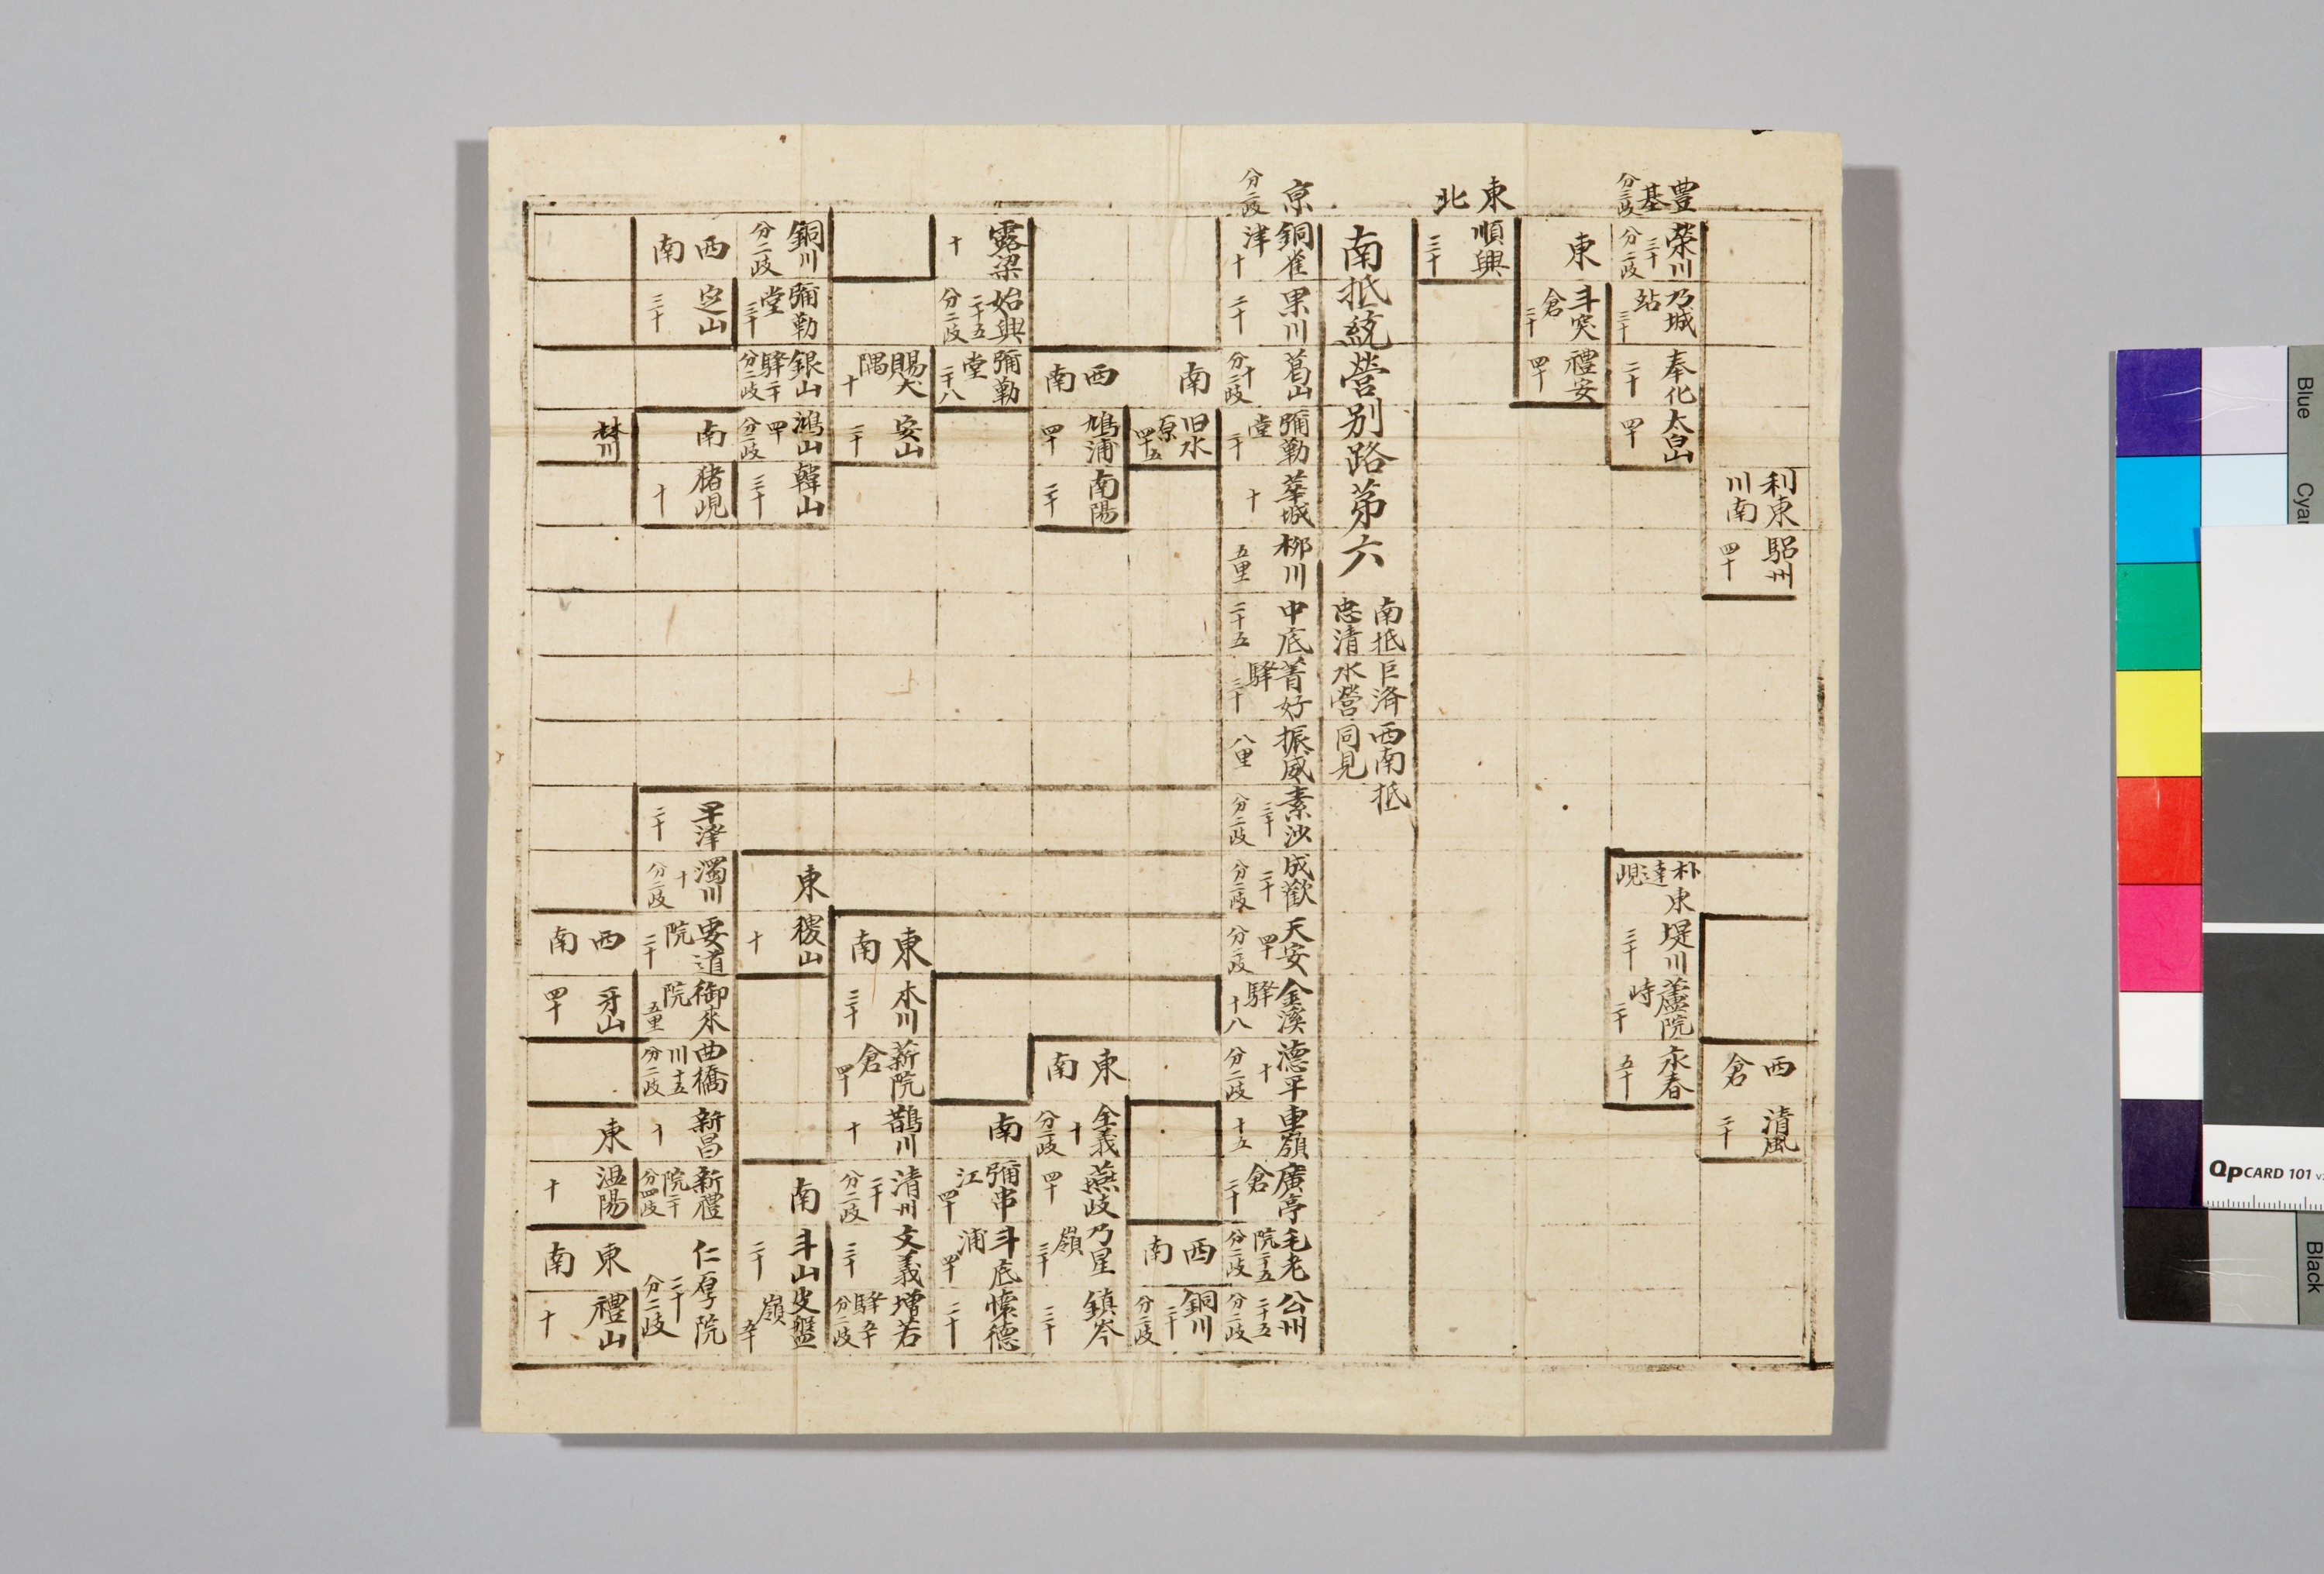 豊基 分三歧
榮川 三十 分二歧
乃城站 三十
奉化 二十
太白山 四十
利川 東南
驪州 四十
朴達峴 東
堤川 三十
蘆院時 二十
永春 五十
西倉
清風 二十
東
斗突倉 三十
禮安 四十
東北
順興 三十
南抵統營別路第六
南抵巨済西南抵
忠清水營同見
京 分二歧
銅雀津 十
果川 二十
葛山 十 分二歧
彌勒堂 二十
華城 十
柳川 五里
中底 二十五
菁好驛 三十
振威 八里
素沙 三十 分二歧
成歡 二十 分二歧
天安 四十 分二歧
金溪驛 十八
德平 十 分二歧
車嶺 十五
廣亭倉 二十
毛老院 二十五 分二歧
公州 二十五 分二歧
南
旧水原 四十五
西南
銅川 二十 分二歧
西南
鳩浦 四十
南陽 二十
東南
全義 十 分二歧
燕歧 四十
乃星嶺 三十
鎮岑 三十
露梁 十
始興 二十五 分二歧
彌勒堂 二十八
南
彌串江 四十
斗底浦 四十
懷德 二十
賜犬隅 十
安山 二十
東南
木川 三十
薪院倉 四十
鵲川 十
清州 二十 分二歧
文義 三十
增若驛 五十 分二歧
銅川 分二歧
彌勒堂 三十
銀山驛 二十 分二歧
鴻山 四十 分二歧
韓山 三十
東
稷山 十
南
斗山 二十
皮盤嶺 五十
西南
定山 三十
南
猪峴 十
平澤 二十
濁川 十 分二歧
要道院 二十
御來院 五里
曲橋川 十五 分二歧
新昌 十
新禮院 二十 分四歧
仁厚院 三十 分二歧
林川
西南
牙山 四十
東
温陽 十
東南
禮山 十
Blue
Cyan
QPCARD 101
Black